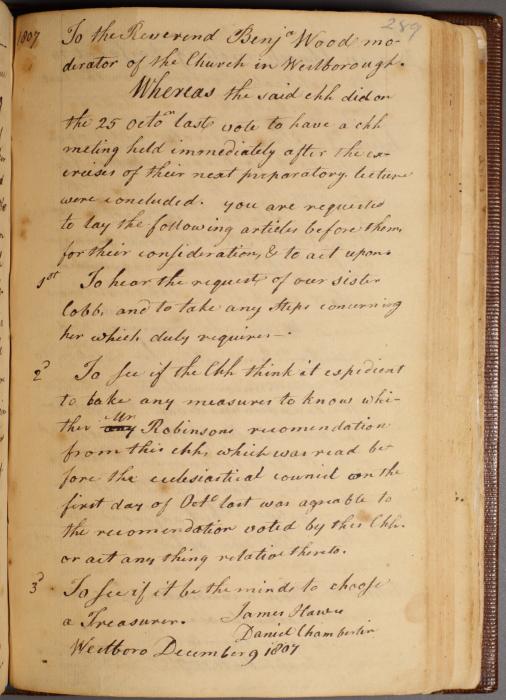 289
1807 To the Reverend Benjᵃ Wood mo-
derator of the Church in Westborough.
Whereas the said chh did on
the 25 Octoᵇʳ last vote to have a chh
meting held immediately after the ex-
ercises of their next preparatory lecture
were concluded. you are requested
to lay the following articles before them,
for their consideration, & to act upon.
1ˢᵗ To hear the request of our sister
Cobb, and to take any steps concerning
her which duty requires—.
2ᵈ To see if the Chh think it expedient
to take any measures to know whi-
ther any Mr Robinsons recomendation
from this chh, which was read be
fore the eclesiastical council on the
first day of Octᵒ last was agreable to
the recomendation voted by this Chh.
or act any thing relative thereto.
3ᵈ To see if it be the minds to choose
a Treasurer. James Hawes
Daniel Chamberlin
Westboro December 9 1807